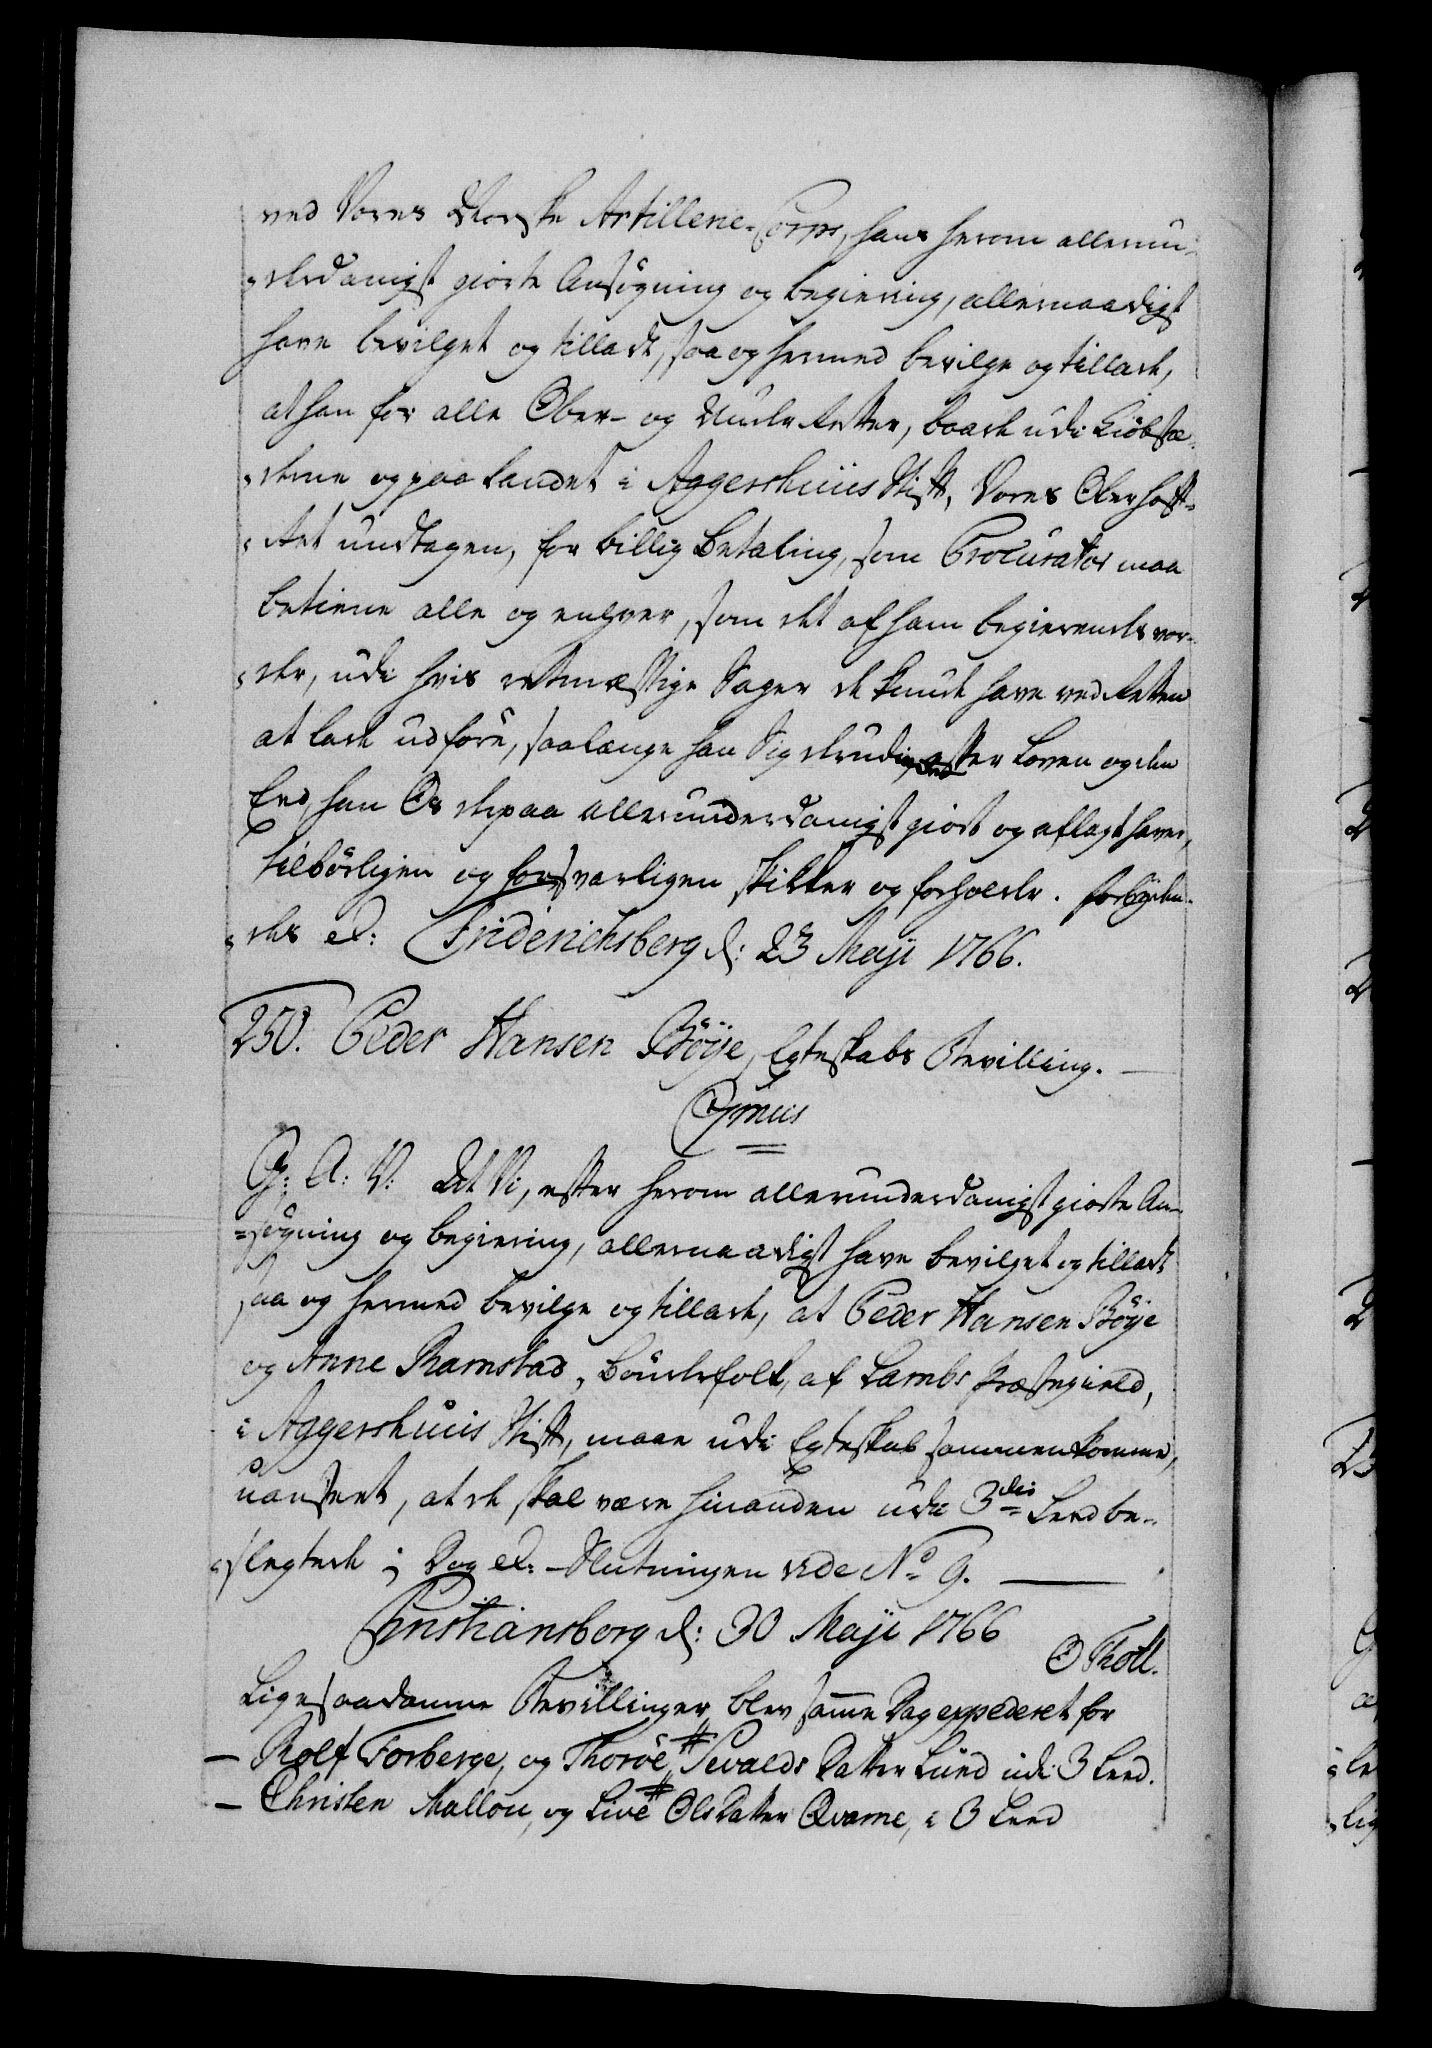 ved Vores Norske Artillerie-Corps, hans herom allerun-
-derdanigst giorte Ansøgning og begiering, allernaadigst
have bevilget og tilladt, saa og hermed bevilge og tillade,
at han for alle Ober- og Under Retter, baade udi Kiøbstæ-
-derne og paa Landet i Aggershuus Stift, Vores Oberhoff-
-Ret undtagen, for billig Betaling, som Procurator maa
betiene alle og enhver, som det af ham begierendes vor-
-der, udi hvis retmæssige Sager de kunde have ved Retten
at lade udføre, saalænge han Sig derudi efter Loven og den
Eed, han Os derpaa allerunderdanigst giort og aflagt haver,
tilbørligen og forsvarligen skikker og forholder. Forbyden-
-des etc: Friderichsberg d: 23 Maji 1766.
250. Peder Hansen Böye, Egteskabs Bevilling.
Gratis
G: A: V: At Vi, efter herom allerunderdanigst giorte An-
-søgning og begiering, allernaadigst have bevilget og tilladt
saa og hermed bevilge og tillade, at Peder Hansen Böye
og Anne Ramstad, Bønderfolk, af Lambs Præstegield,
i Aggershuus Stift, maae udi Egteskab sammenkomme,
uanseet, at de skal være hinanden udi 3die Leed be-
-slegtede; Dog etc: Slutningen vide No 9.
Christiansborg d: 30 Maji 1766
O Thott.
Ligesaadanne Bevillinger blev samme Dag expederet for
- Rolf Forberge, og Thoroe Sevalds Datter Lund udi 3 Leed.
- Christen Mallou, og Live Ols Datter Qvarne, i 3 Leed